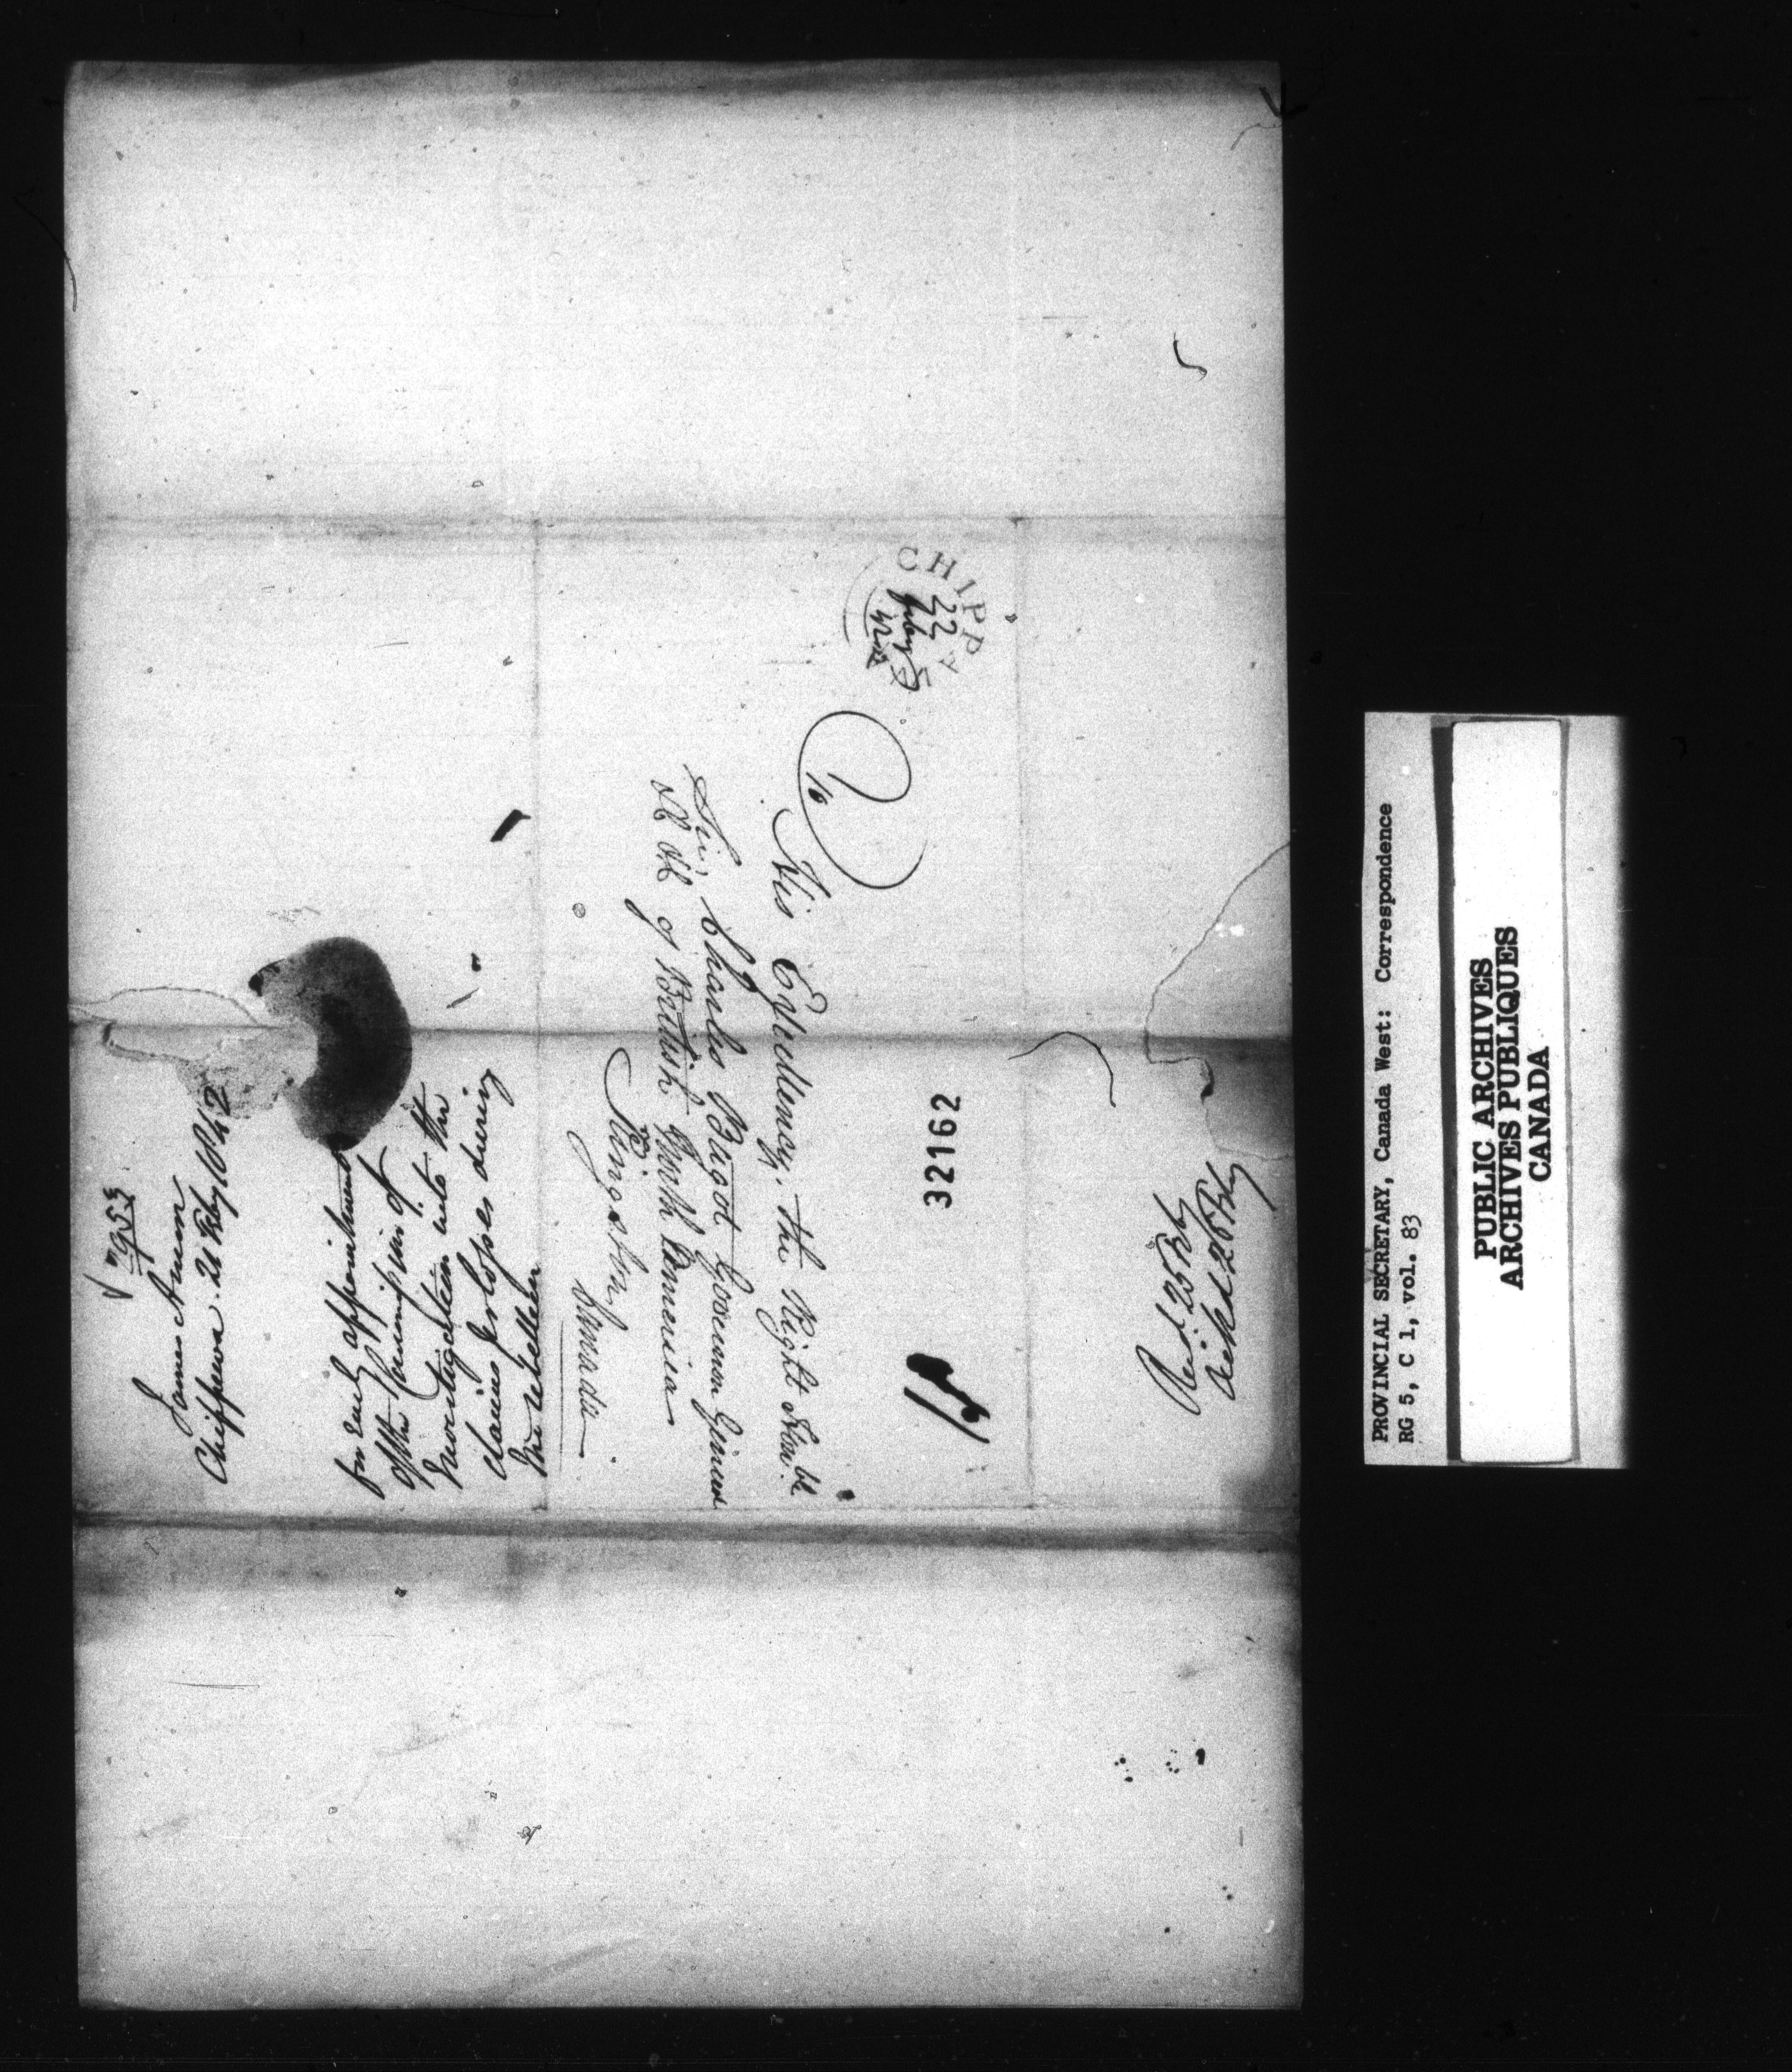 CHIPPAWA
22
Feby
1842
10
His Excellency, the Right Hon.ble
Sir, Charles Bagot Governor General
of British North America
Kingston
Canada
32162
Recd 25 Feby
Ackd 26 Feby
953
James
Chippewa. 21 Feby 1842
for early appointment
of the Commission of
Investigation into the
claims for losses during
the rebellion
PROVINCIAL SECRETARY, Canada West: Correspondence
RG 5, C 1, vol. 83
PUBLIC ARCHIVES
ARCHIVES PUBLIQUES
CANADA